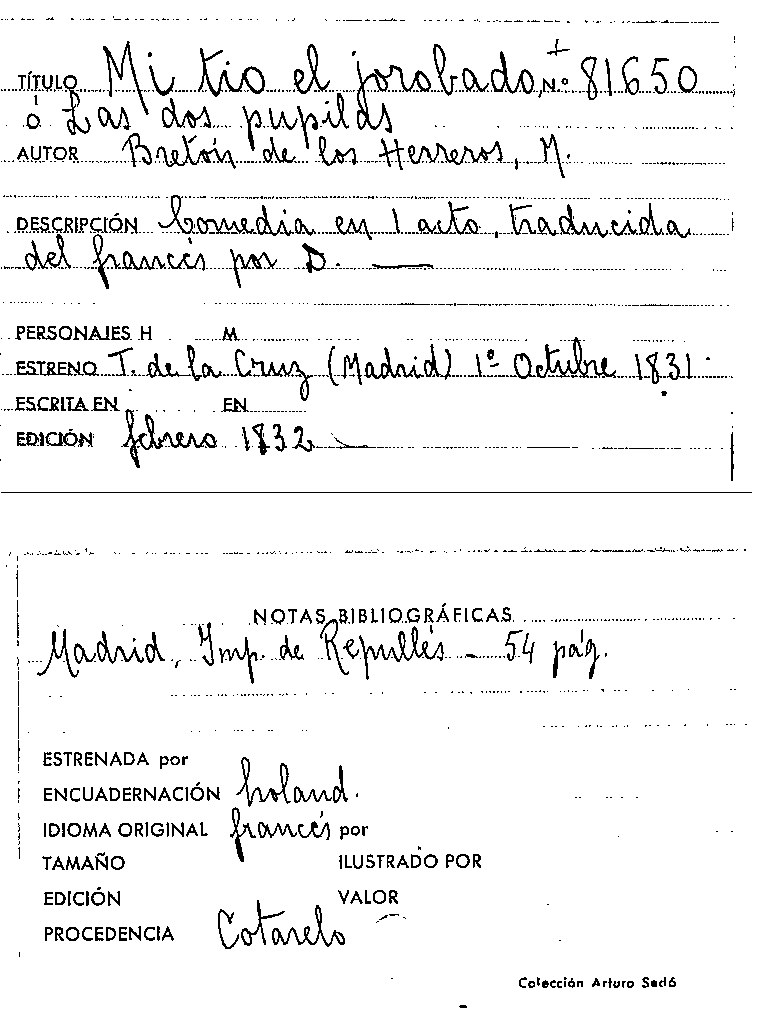 TÍTULO Mi tio el jorobado, Nº 81650
ó Las dos pupilas
AUTOR Bretón de los Herreros, M.
DESCRIPCIÓN Comedia en 1 acto, traducida
del francés por D. —
PERSONAJES H M
ESTRENO T. de la Cruz (Madrid) 1º Octubre 1831.
ESCRITA EN EN
EDICIÓN febrero 1832
NOTAS BIBLIOGRÁFICAS
Madrid, Imp. de Repullés - 54 pág.
ESTRENADA por
ENCUADERNACIÓN holand.
IDIOMA ORIGINAL francés por
TAMAÑO ILUSTRADO POR
EDICIÓN VALOR
PROCEDENCIA Cotarelo
Colección Arturo Sedó